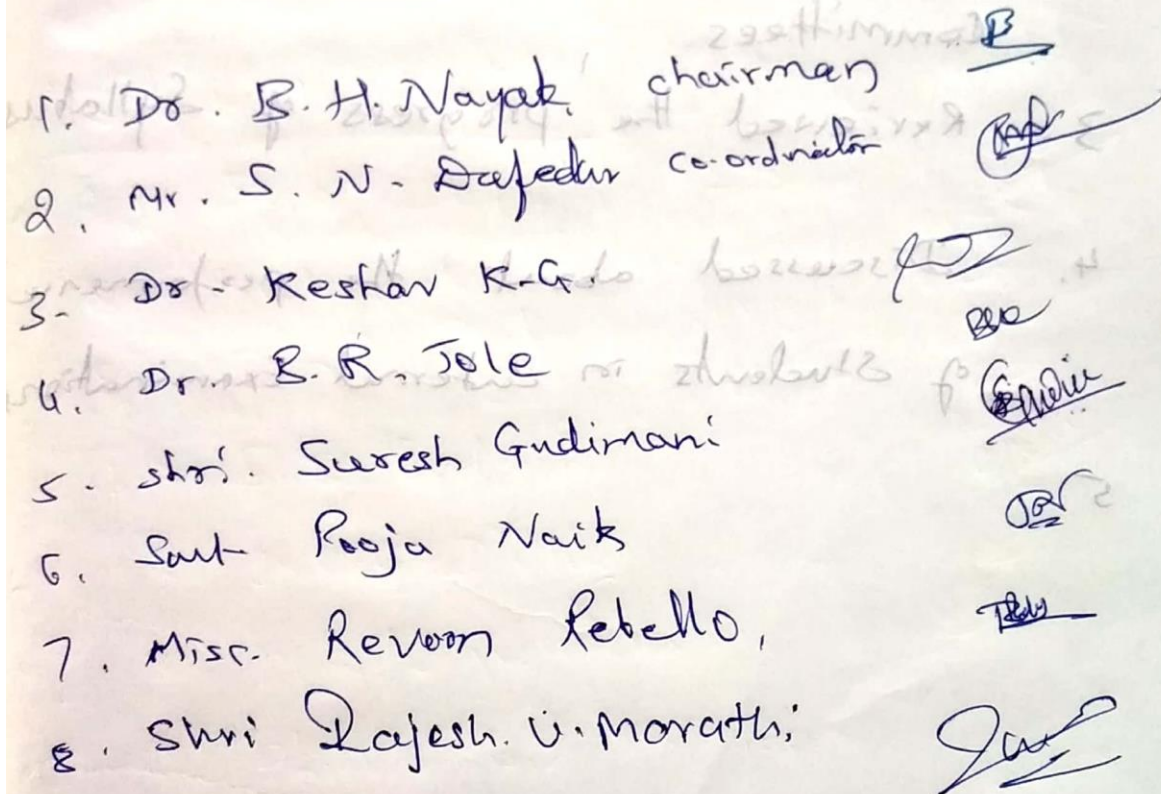 1. Dr. B. H. Nayak. chairman
2. Mr. S. N. Dafedar co-ordinator
3- Dr- Keshav K.G.
4. Dr. B. R. Tole
5. shri. Suresh Gudimani
6. Smt Pooja Naik
7. Miss. Revoon Rebello,
8. Shri Rajesh. V. Marathi